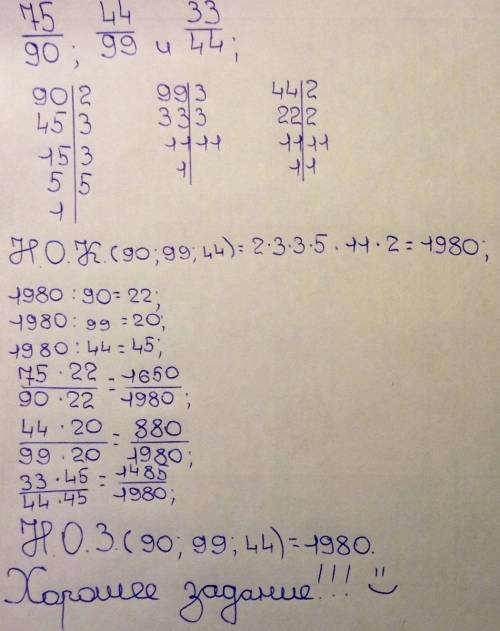 75/90; 44/99 и 33/44;
90|2 99|3 44|2
45|3 33|3 22|2
15|3 11|11 11|11
5|5 1| 1|1
1|
Н.О.К.(90;99;44)=2·3·3·5·11·2=1980;
1980:90=22;
1980:99=20;
1980:44=45;
75·22/90·22=1650/1980;
44·20/99·20=880/1980;
33·45/44·45=1485/1980;
Н.О.З.(90;99;44)=1980.
Хорошее задание!!!